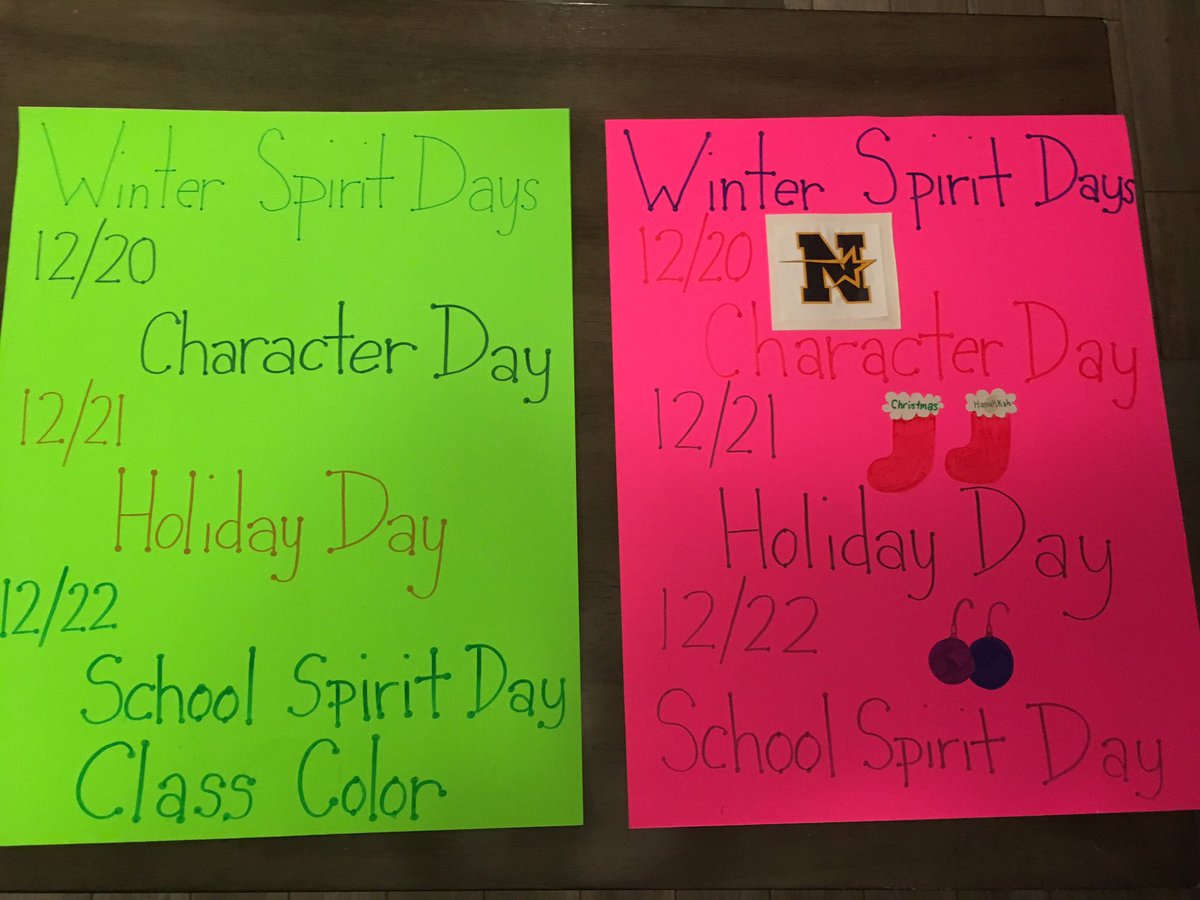 Winter Spirit Days
12/20
Character Day
12/21
Holiday Day
12/22
School Spirit Day
Class Color
Winter Spirit Days
12/20
N
Character Day
12/21
Christmas
Hanukkah
Holiday Day
12/22
School Spirit Day